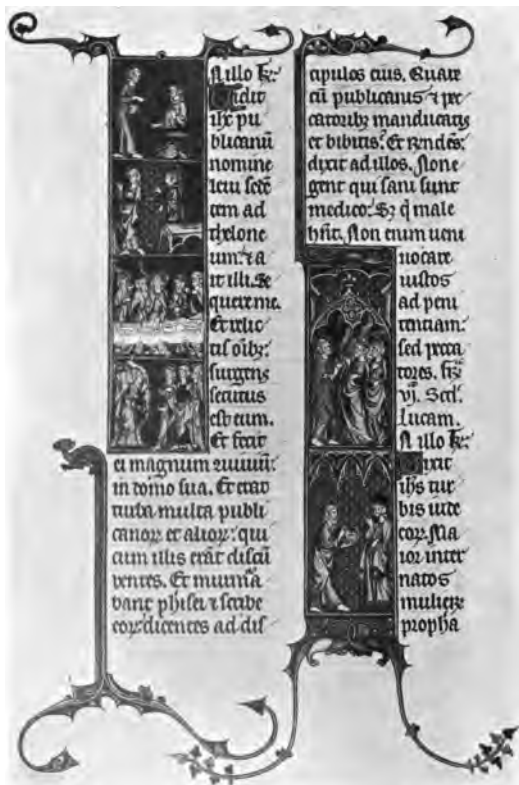 N illo t̄:
Vidit
ihc pu
blicanū
nomine
leui sedē
tem ad
thelone
um: ⁊ a
it illi. Se
quere me.
Et relic
tis oīb⁊:
surgens
secutus
est eum.
Et fecit
ei magnum
in domo sua. Et erat
turba multa publi
canoꝝ et alioꝝ: qui
cum illis erāt discū
bentes. Et murm̄a
bant phisei ⁊ scribe
eoꝝ: dicentes ad dis
cipulos eius. Quare
cū publicanis ⁊ pec
catorib⁊ manducatis
et bibitis? Et rn̄dēs:
dixit ad illos. Non e
gent qui sani sunt
medico: S⁊ q̄ male
hn̄t. Non enim ueni
uocare
iustos
ad peni
tenciam:
sed pecca
tores.
vj. Scd'.
Lucam.
N illo t̄:
Dixit
ihs tur
bis iude
oꝝ. Ma
ior inter
natos
mulieꝝ
propha